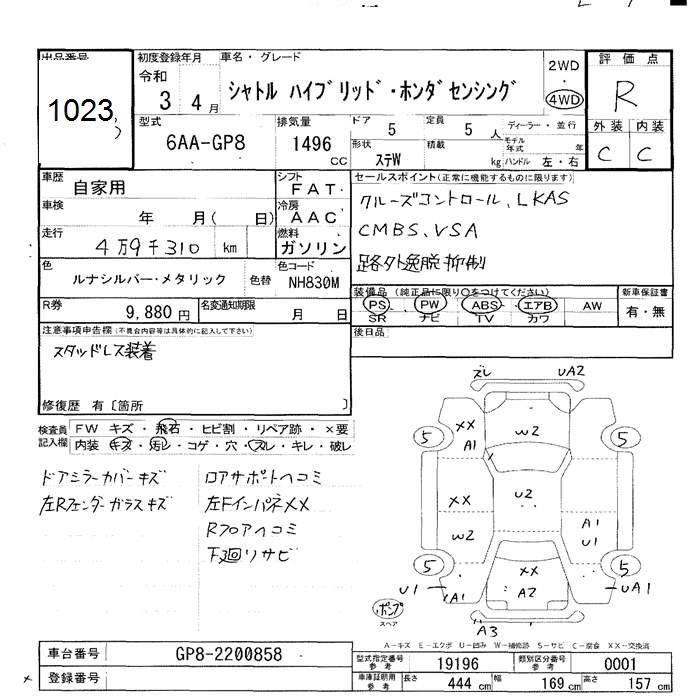 出品番号
1023
初度登録年月
令和
3年 4月
車名・グレード
シャトル ハイブリッド・ホンダセンシング
2WD
4WD
評価点
R
外装 内装
C C
型式
6AA-GP8
排気量
1496 cc
ドア 5
定員 5 人
形状 ステW
積載 kg
ディーラー・並行
モデル年式 年
ハンドル 左・右
車歴
自家用
シフト
FAT
車検
年 月( 日)
冷房
AAC
走行
4万9千310 km
燃料
ガソリン
色
ルナシルバー・メタリック
色替
色コード
NH830M
R券
9,880円
名変通知期限
月 日
セールスポイント(正常に機能するものに限ります)
クルーズコントロール、LKAS
CMBS、VSA
路外逸脱抑制
装備品(純正品に限り○をつけてください)
PS PW ABS エアB AW
SR ナビ TV カワ
新車保証書
有・無
後日品
注意事項申告欄(不具合内容等は具体的に記入して下さい)
スタッドレス装着
修復歴 有〔箇所 〕
検査員記入欄
FW キズ・飛石・ヒビ割・リペア跡・×要
内装 キズ・汚レ・コゲ・穴・スレ・キレ・破レ
ドアミラーカバーキズ
左Rフェンダーガラスキズ
ロアサポートヘコミ
左FインパネXX
Rフロアヘコミ
下廻リサビ
ズレ UA2
XX W2
5 A1 5
XX U2
W2 A1
U1
5 XX 5
U1 A1 A2 UA1
ポンプ
スペア
A3
A-キズ E-エクボ U-凹み W-補修跡 S-サビ C-腐食 XX-交換済
車台番号
GP8-2200858
登録番号
型式指定番号参考
19196
類別区分番号参考
0001
車庫証明用参考
長さ 444 cm
幅 169 cm
高さ 157 cm